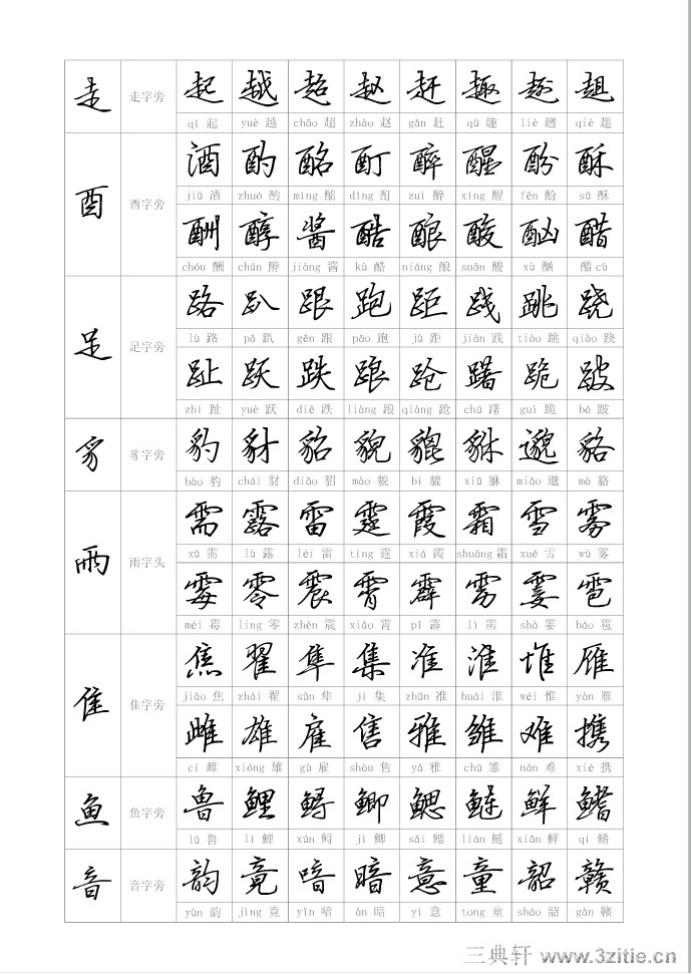 走 走字旁 起 越 超 赵 赶 趣 趔 趄
qǐ 起 yuè 越 chāo 超 zhào 赵 gǎn 赶 qù 趣 liè 趔 qiè 趄
酉 酉字旁 酒 酌 酩 酊 醉 醒 酚 酥
jiǔ 酒 zhuó 酌 mǐng 酩 dǐng 酊 zuì 醉 xǐng 醒 fēn 酚 sū 酥
酬 醇 酱 酷 酿 酸 酗 醋
chóu 酬 chún 醇 jiàng 酱 kù 酷 niáng 酿 suān 酸 xù 酗 醋 cù
足 足字旁 路 趴 跟 跑 距 践 跳 跷
lù 路 pā 趴 gēn 跟 pǎo 跑 jù 距 jiàn 践 tiào 跳 qiào 跷
趾 跃 跌 踉 跄 躇 跪 跛
zhǐ 趾 yuè 跃 diē 跌 liàng 踉 qiàng 跄 chú 躇 guì 跪 bǒ 跛
豸 豸字旁 豹 豺 貂 貌 貔 貅 邈 貉
bào 豹 chái 豺 diāo 貂 mào 貌 pí 貔 xiū 貅 miǎo 邈 mò 貉
雨 雨字头 需 露 雷 霆 霞 霜 雪 雾
xū 需 lù 露 léi 雷 tíng 霆 xiá 霞 shuāng 霜 xuě 雪 wù 雾
霉 零 震 霄 霹 雳 霎 雹
méi 霉 líng 零 zhèn 震 xiāo 霄 pī 霹 lì 雳 shà 霎 báo 雹
隹 隹字旁 焦 翟 隼 集 准 淮 惟 雁
jiāo 焦 zhái 翟 sǔn 隼 jí 集 zhǔn 准 huái 淮 wéi 惟 yàn 雁
雌 雄 雇 售 雅 雏 难 携
cí 雌 xióng 雄 gù 雇 shòu 售 yǎ 雅 chú 雏 nán 难 xié 携
鱼 鱼字旁 鲁 鲤 鲟 鲫 鳃 鲢 鲜 鳍
lǔ 鲁 lǐ 鲤 xún 鲟 jì 鲫 sāi 鳃 lián 鲢 xiān 鲜 qí 鳍
音 音字旁 韵 竟 喑 暗 意 童 韶 赣
yùn 韵 jìng 竟 yīn 喑 àn 暗 yì 意 tong 童 sháo 韶 gàn 赣
三典轩 www.3zitie.cn